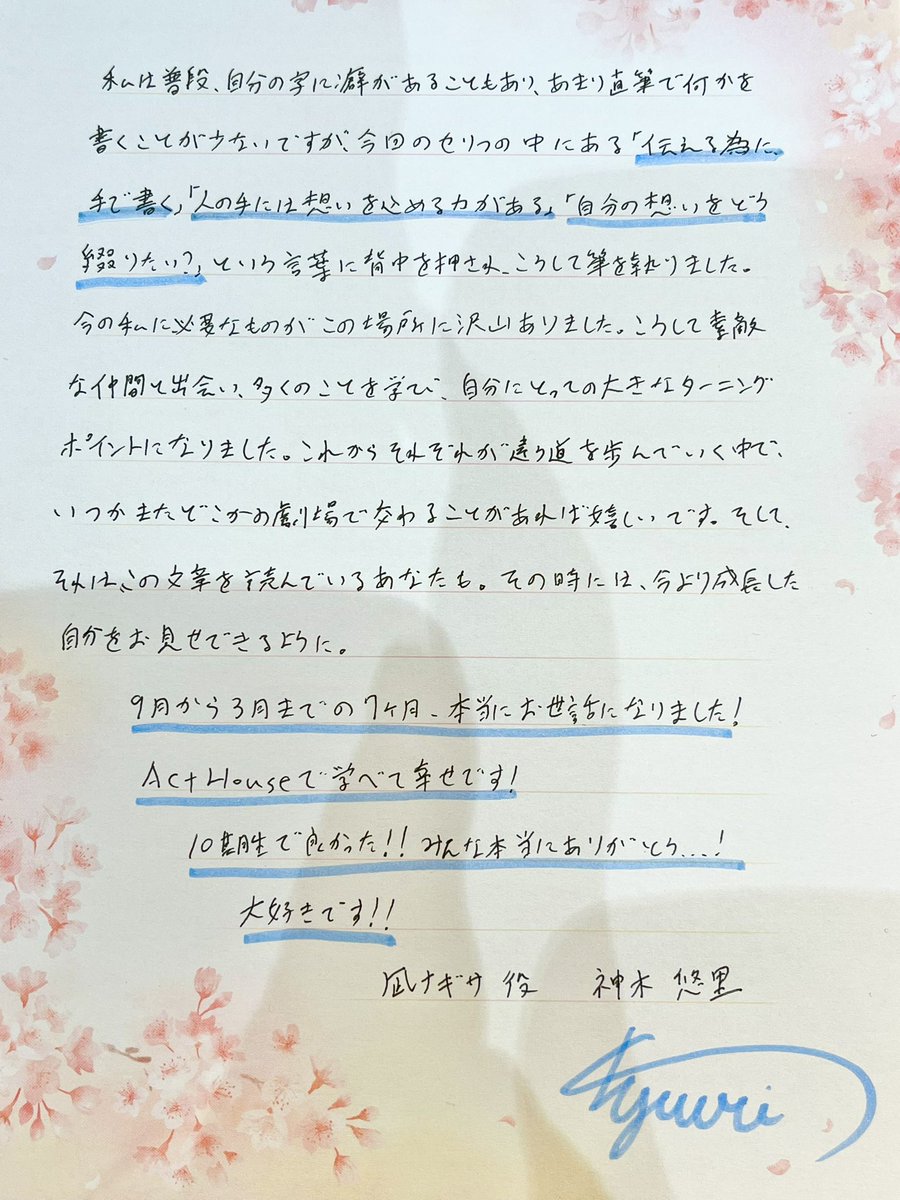 私は普段、自分の字に癖があることもあり、あまり直筆で何かを
書くことが少ないですが、今回のセリフの中にある「伝える為に、
手で書く」「人の手には想いを込める力がある」「自分の想いをどう
綴りたい?」という言葉に背中を押され、こうして筆を執りました。
今の私に必要なものがこの場所に沢山ありました。こうして素敵
な仲間と出会い、多くのことを学び、自分にとっての大きなターニング
ポイントになりました。これからそれぞれが違う道を歩んでいく中で、
いつかまたどこかの劇場で交わることがあれば嬉しいです。そして、
それは、この文章を読んでいるあなたも。その時には、今より成長した
自分をお見せできるように。
9月から3月までの7ヶ月、本当にお世話になりました!
Act Houseで学べて幸せです!
10期生で良かった!!みんな本当にありがとう...!
大好きです!!
凪ナギサ 役 神木 悠里